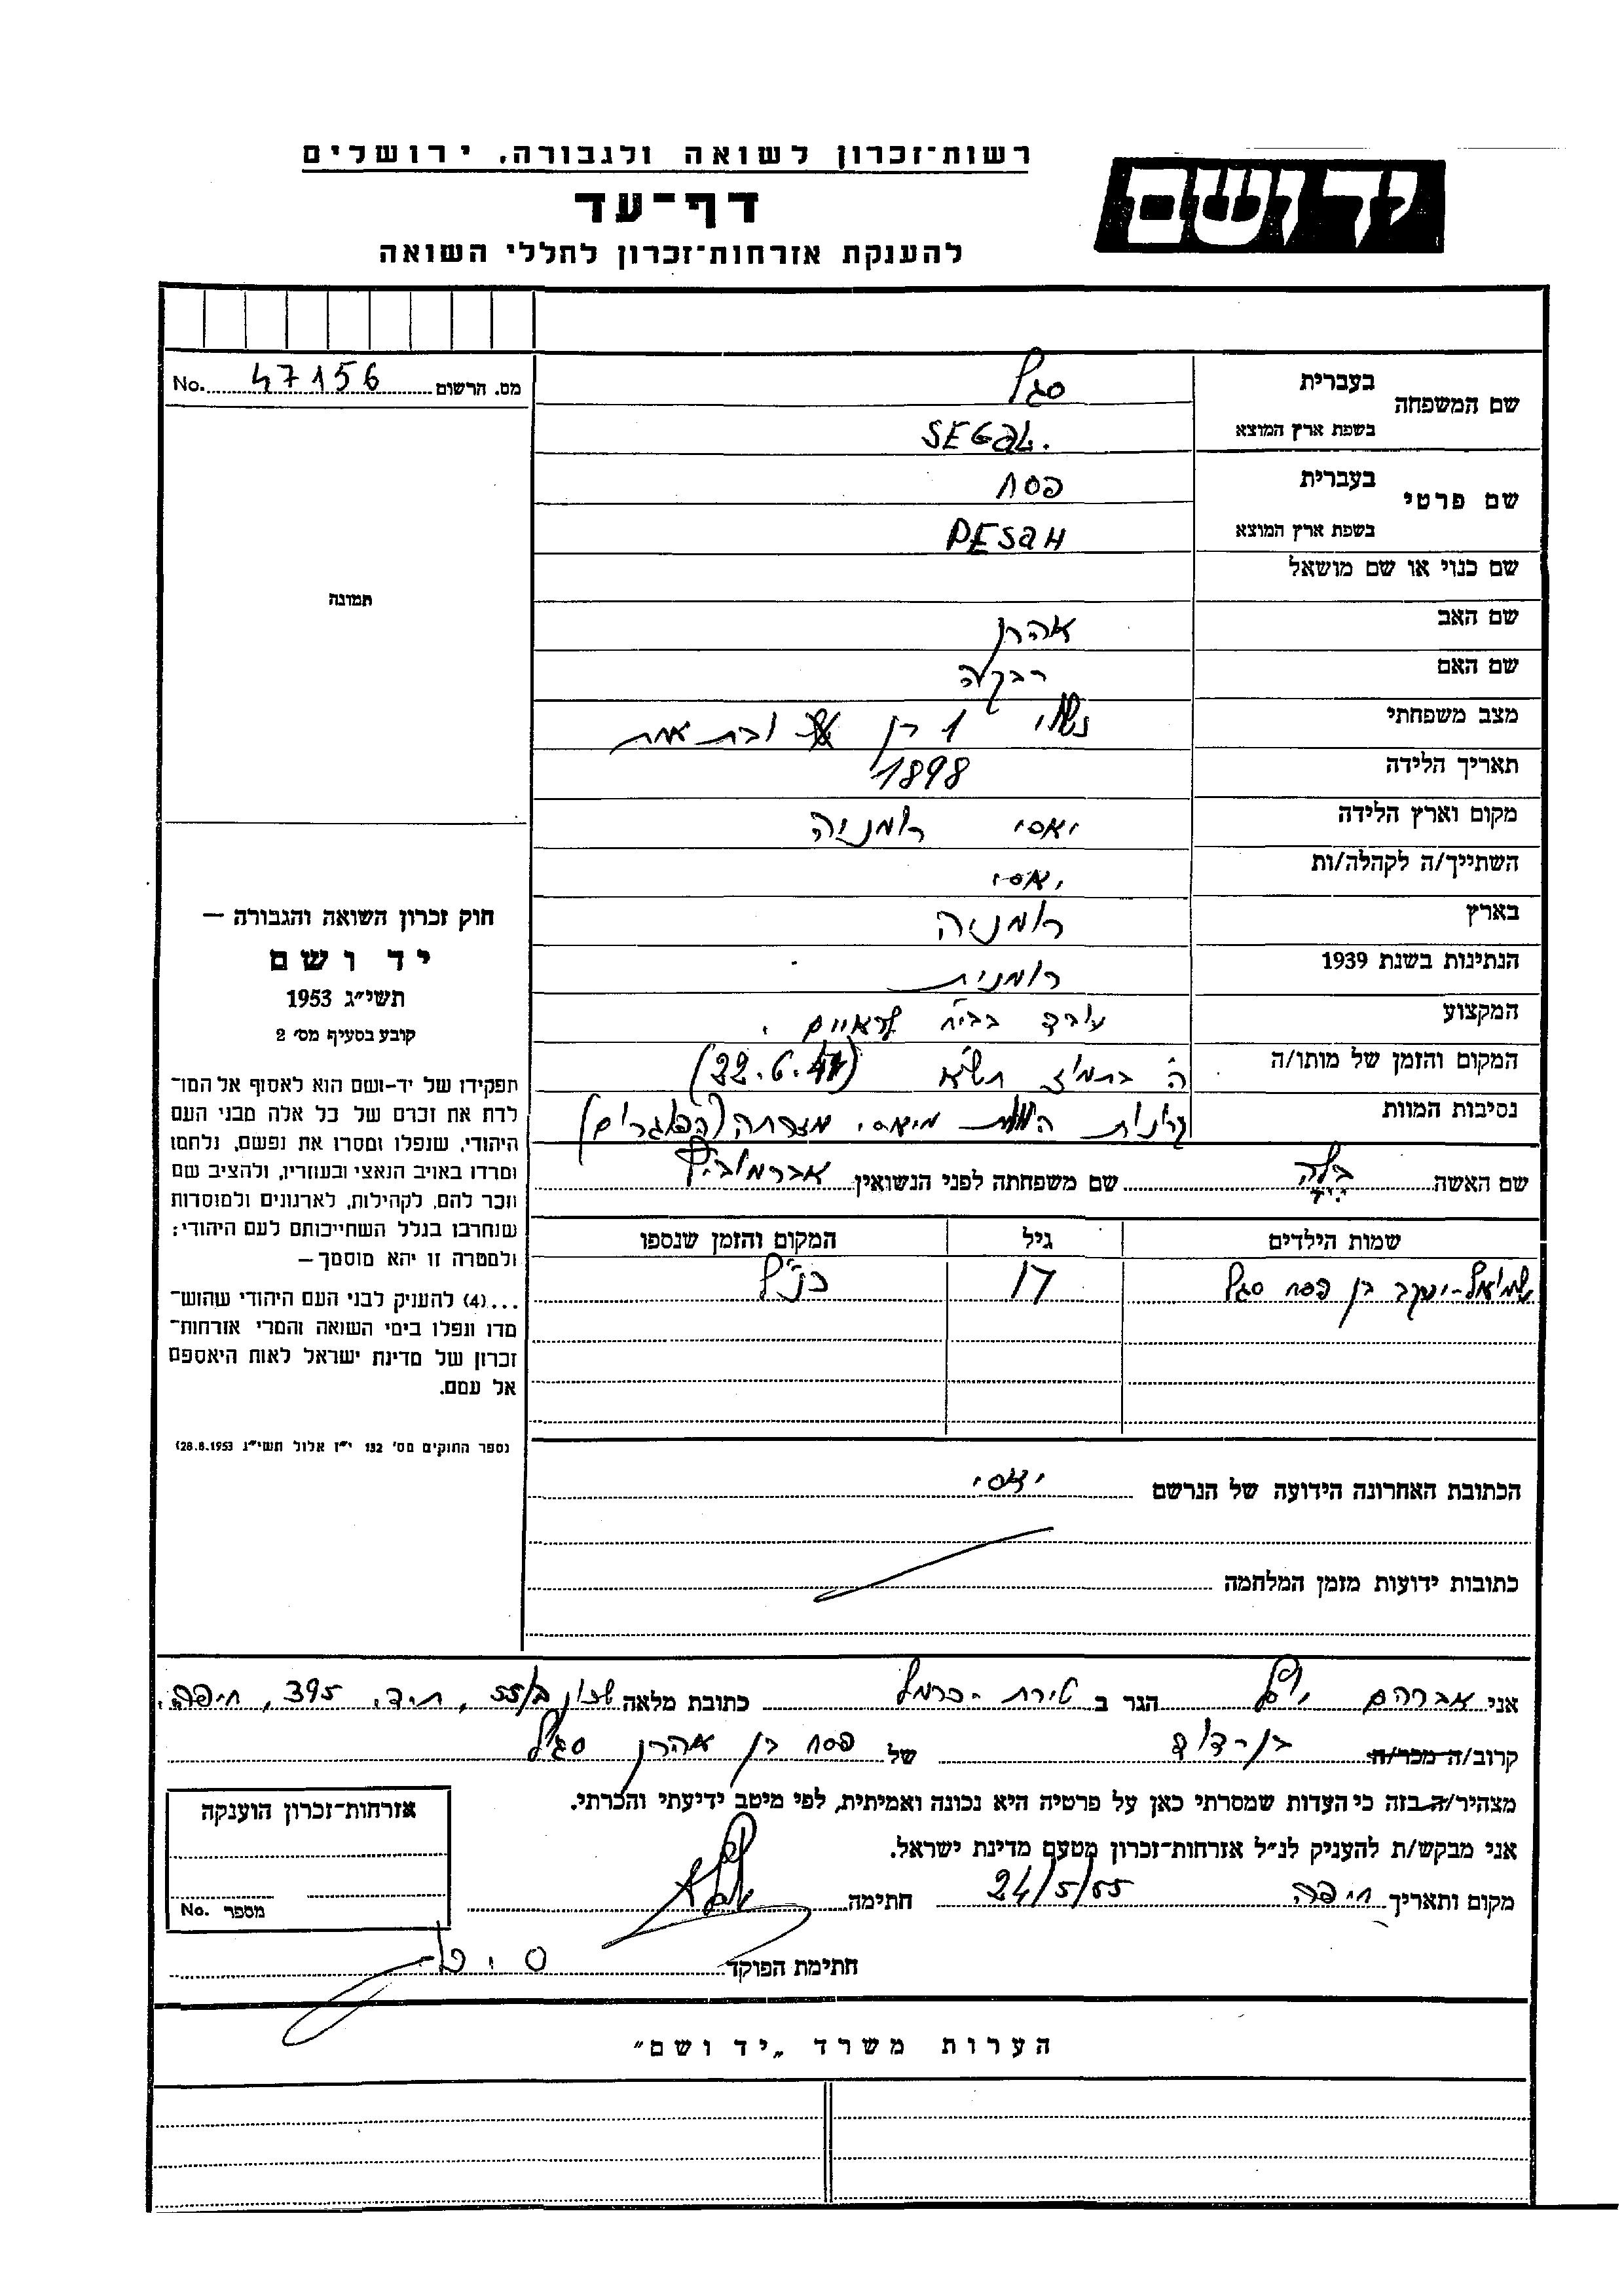 רשות־זכרון לשואה ולגבורה, ירושלים
יד ושם
דף־עד
להענקת אזרחות־זכרון לחללי השואה
מס. הרשום 47156 No.
שם המשפחה
בעברית סגל
בשפת ארץ המוצא SEGAL.
שם פרטי
בעברית פסח
בשפת ארץ המוצא PESAH
שם כנוי או שם מושאל
שם האב אהרן
שם האם רבקה
מצב משפחתי נשוי 1 בן ובת אחת
תאריך הלידה 1898
מקום וארץ הלידה יאסי רומניה
השתייך/ה לקהלה/ות יאסי
בארץ רומניה
הנתינות בשנת 1939 רומנית
המקצוע עובד בביח
המקום והזמן של מותו/ה ה' בתמוז תש"א (22.6.41)
נסיבות המוות מיאסי מזרחה (הפוגרום)
תמונה
חוק זכרון השואה והגבורה —
יד ושם
תשי״ג 1953
קובע בסעיף מס׳ 2
תפקידו של יד־ושם הוא לאסוף אל המו־
לדת את זכרם של כל אלה מבני העם
היהודי, שנפלו ומסרו את נפשם, נלחמו
ומרדו באויב הנאצי ובעוזריו, ולהציב שם
וזכר להם, לקהילות, לארגונים ולמוסדות
שנחרבו בגלל השתייכותם לעם היהודי;
ולמטרה זו יהא מוסמך—
...(4) להעניק לבני העם היהודי שהוש־
מדו ונפלו בימי השואה והמרי אזרחות־
זכרון של מדינת ישראל לאות היאספם
אל עמם.
(ספר החוקים מס׳ 132 י״ז אלול תשי״ג 28.8.1953)
שם האשה בלה שם משפחתה לפני הנשואין אברמוביץ
שמות הילדים גיל המקום והזמן שנספו
שמואל-יעקב בן פסח סגל 17 כנ"ל
הכתובת האחרונה הידועה של הנרשם יאסי
כתובות ידועות מזמן המלחמה
אני אברהם הגר ב טירת-כרמל כתובת מלאה שכון ב/55, ת.ד. 395, חיפה.
קרוב/ה מכר/ה בן-דוד של פסח בן אהרן סגל
מצהיר/ה בזה כי העדות שמסרתי כאן על פרטיה היא נכונה ואמיתית, לפי מיטב ידיעתי והכרתי.
אני מבקש/ת להעניק לנ״ל אזרחות־זכרון מטעם מדינת ישראל.
מקום ותאריך חיפה 24/5/55 חתימה
חתימת הפוקד
אזרחות־זכרון הוענקה
מספר No.
הערות משרד „יד ושם״